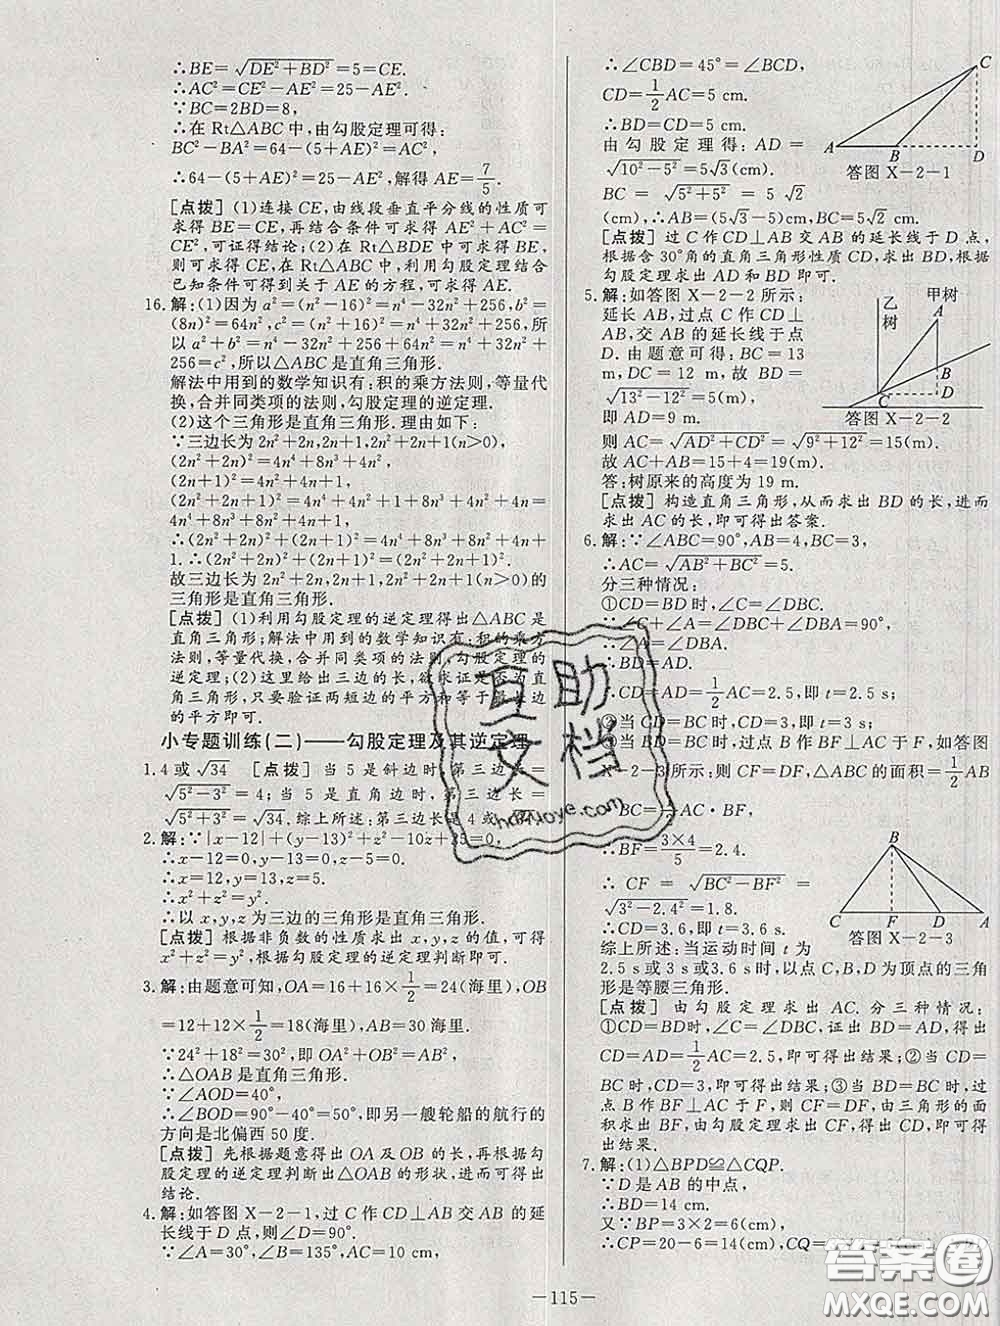 ∴BE=√(DE²+BD²)=5=CE.
∴AC²=CE²-AE²=25-AE².
∵BC=2BD=8,
∴在 Rt△ABC 中,由勾股定理可得:
BC²-BA²=64-(5+AE)²=AC²,
∴64-(5+AE)²=25-AE²,解得 AE=7/5.
[点拨] (1)连接 CE,由线段垂直平分线的性质可
求得 BE=CE,再结合条件可求得 AE²+AC²=
CE²,可证得结论;(2)在 Rt△BDE 中可求得 BE,
则可求得 CE,在 Rt△ABC 中,利用勾股定理结合
已知条件可得到关于 AE 的方程,可求得 AE.
16.解:(1)因为 a²=(n²-16)²=n⁴-32n²+256,b²=
(8n)²=64n²,c²=(n²+16)²=n⁴+32n²+256,所
以 a²+b²=n⁴-32n²+256+64n²=n⁴+32n²
+256=c²,所以△ABC 是直角三角形.
解法中用到的数学知识有:积的乘方法则,等量代
换,合并同类项的法则,勾股定理的逆定理.
(2)这个三角形是直角三角形.理由如下:
∵三边长为 2n²+2n,2n+1,2n²+2n+1(n>0),
(2n²+2n)²=4n⁴+8n³+4n²,
(2n+1)²=4n²+4n+1,
(2n²+2n+1)²=4n⁴+4n²+1+8n³+4n²+4n=
4n⁴+8n³+8n²+4n+1,
∴(2n²+2n)²+(2n+1)²=4n⁴+8n³+8n²+4n+
1.∴(2n²+2n)²+(2n+1)²=(2n²+2n+1)².
故三边长为 2n²+2n,2n+1,2n²+2n+1(n>0)的
三角形是直角三角形.
[点拨] (1)利用勾股定理的逆定理得出△ABC 是
直角三角形;解法中用到的数学知识有:积的乘方
法则,等量代换,合并同类项的法则,勾股定理的
逆定理;(2)这里给出三边的长,欲求证是否为直
角三角形,只要验证两短边的平方和等于最长边
的平方即可.
小专题训练(二)——勾股定理及其逆定理
1.4 或√34 [点拨] 当 5 是斜边时,第三边长=
√(5²-3²)=4;当 5 是直角边时,第三边长=
√(5²+3²)=√34.综上所述:第三边长是 4 或√34.
2.解:∵|x-12|+(y-13)²+z²-10z+25=0,
∴x-12=0,y-13=0,z-5=0.
∴x=12,y=13,z=5.
∴x²+z²=y².
∴以 x,y,z 为三边的三角形是直角三角形.
[点拨] 根据非负数的性质求出 x,y,z 的值,可得
x²+z²=y²,根据勾股定理的逆定理判断即可.
3.解:由题意可知,OA=16+16×1/2=24(海里),OB
=12+12×1/2=18(海里),AB=30 海里.
∵24²+18²=30²,即 OA²+OB²=AB²,
∴△OAB 是直角三角形.
∵∠AOD=40°,
∴∠BOD=90°-40°=50°,即另一艘轮船的航行的
方向是北偏西 50 度.
[点拨] 先根据题意得出 OA 及 OB 的长,再根据勾
股定理的逆定理判断出△OAB 的形状,进而可得出
结论.
4.解:如答图 X-2-1,过 C 作 CD⊥AB 交 AB 的延
长线于 D 点,则∠D=90°.
∵∠A=30°,∠B=135°,AC=10 cm,
∴∠CBD=45°=∠BCD,
CD=1/2AC=5 cm.
∴BD=CD=5 cm.
由勾股定理得:AD=
√(10²-5²)=5√3(cm).
BC=√(5²+5²)=5√2
(cm),∴AB=(5√3-5)cm,BC=5√2 cm.
A B D C
答图 X-2-1
[点拨] 过 C 作 CD⊥AB 交 AB 的延长线于 D 点,
根据含 30°角的直角三角形性质 CD,求出 BD,根据
勾股定理求出 AD 和 BD 即可.
5.解:如答图 X-2-2 所示:
延长 AB,过点 C 作 CD⊥
AB,交 AB 的延长线于点
D.由题意可得:BC=13
m,DC=12 m,故 BD=
√(13²-12²)=5(m),
即 AD=9 m.
乙树 甲树 A B C D
答图 X-2-2
则 AC=√(AD²+CD²)=√(9²+12²)=15(m).
故 AC+AB=15+4=19(m).
答:树原来的高度为 19 m.
[点拨] 构造直角三角形,从而求出 BD 的长,进而
求出 AC 的长,即可得出答案.
6.解:∵∠ABC=90°,AB=4,BC=3,
∴AC=√(AB²+BC²)=5.
分三种情况:
①CD=BD 时,∠C=∠DBC.
∵∠C+∠A=∠DBC+∠DBA=90°,
∴∠A=∠DBA.
∴BD=AD.
∴CD=AD=1/2AC=2.5,即 t=2.5 s;
②当 CD=BC 时,CD=3,即 t=3 s;
③当 BD=BC 时,过点 B 作 BF⊥AC 于 F,如答图
X-2-3 所示:则 CF=DF,△ABC 的面积=1/2AB
·BC=1/2AC·BF,
∴BF=3×4/5=2.4.
∴CF=√(BC²-BF²)=
√(3²-2.4²)=1.8.
∴CD=3.6,即 t=3.6 s.
B C F D A
答图 X-2-3
综上所述:当运动时间 t 为
2.5 s或3 s或3.6 s时,以点 C,B,D 为顶点的三角
形是等腰三角形.
[点拨] 由勾股定理求出 AC.分三种情况:
①CD=BD 时,∠C=∠DBC,证出 BD=AD,得出
CD=AD=1/2AC=2.5,即可得出结果;②当 CD=
BC 时,CD=3,即可得出结果;③当 BD=BC 时,过
点 B 作 BF⊥AC 于 F,则 CF=DF,由三角形的面
积求出 BF,由勾股定理求出 CF,得出 CD,即可得
出结果.
7.解:(1)△BPD≌△CQP.
∵D 是 AB 的中点,
∴BD=14 cm.
又∵BP=3×2=6(cm),
∴CP=20-6=14(cm),CQ=
—115—
互助文档
答案圈
MXQE.COM